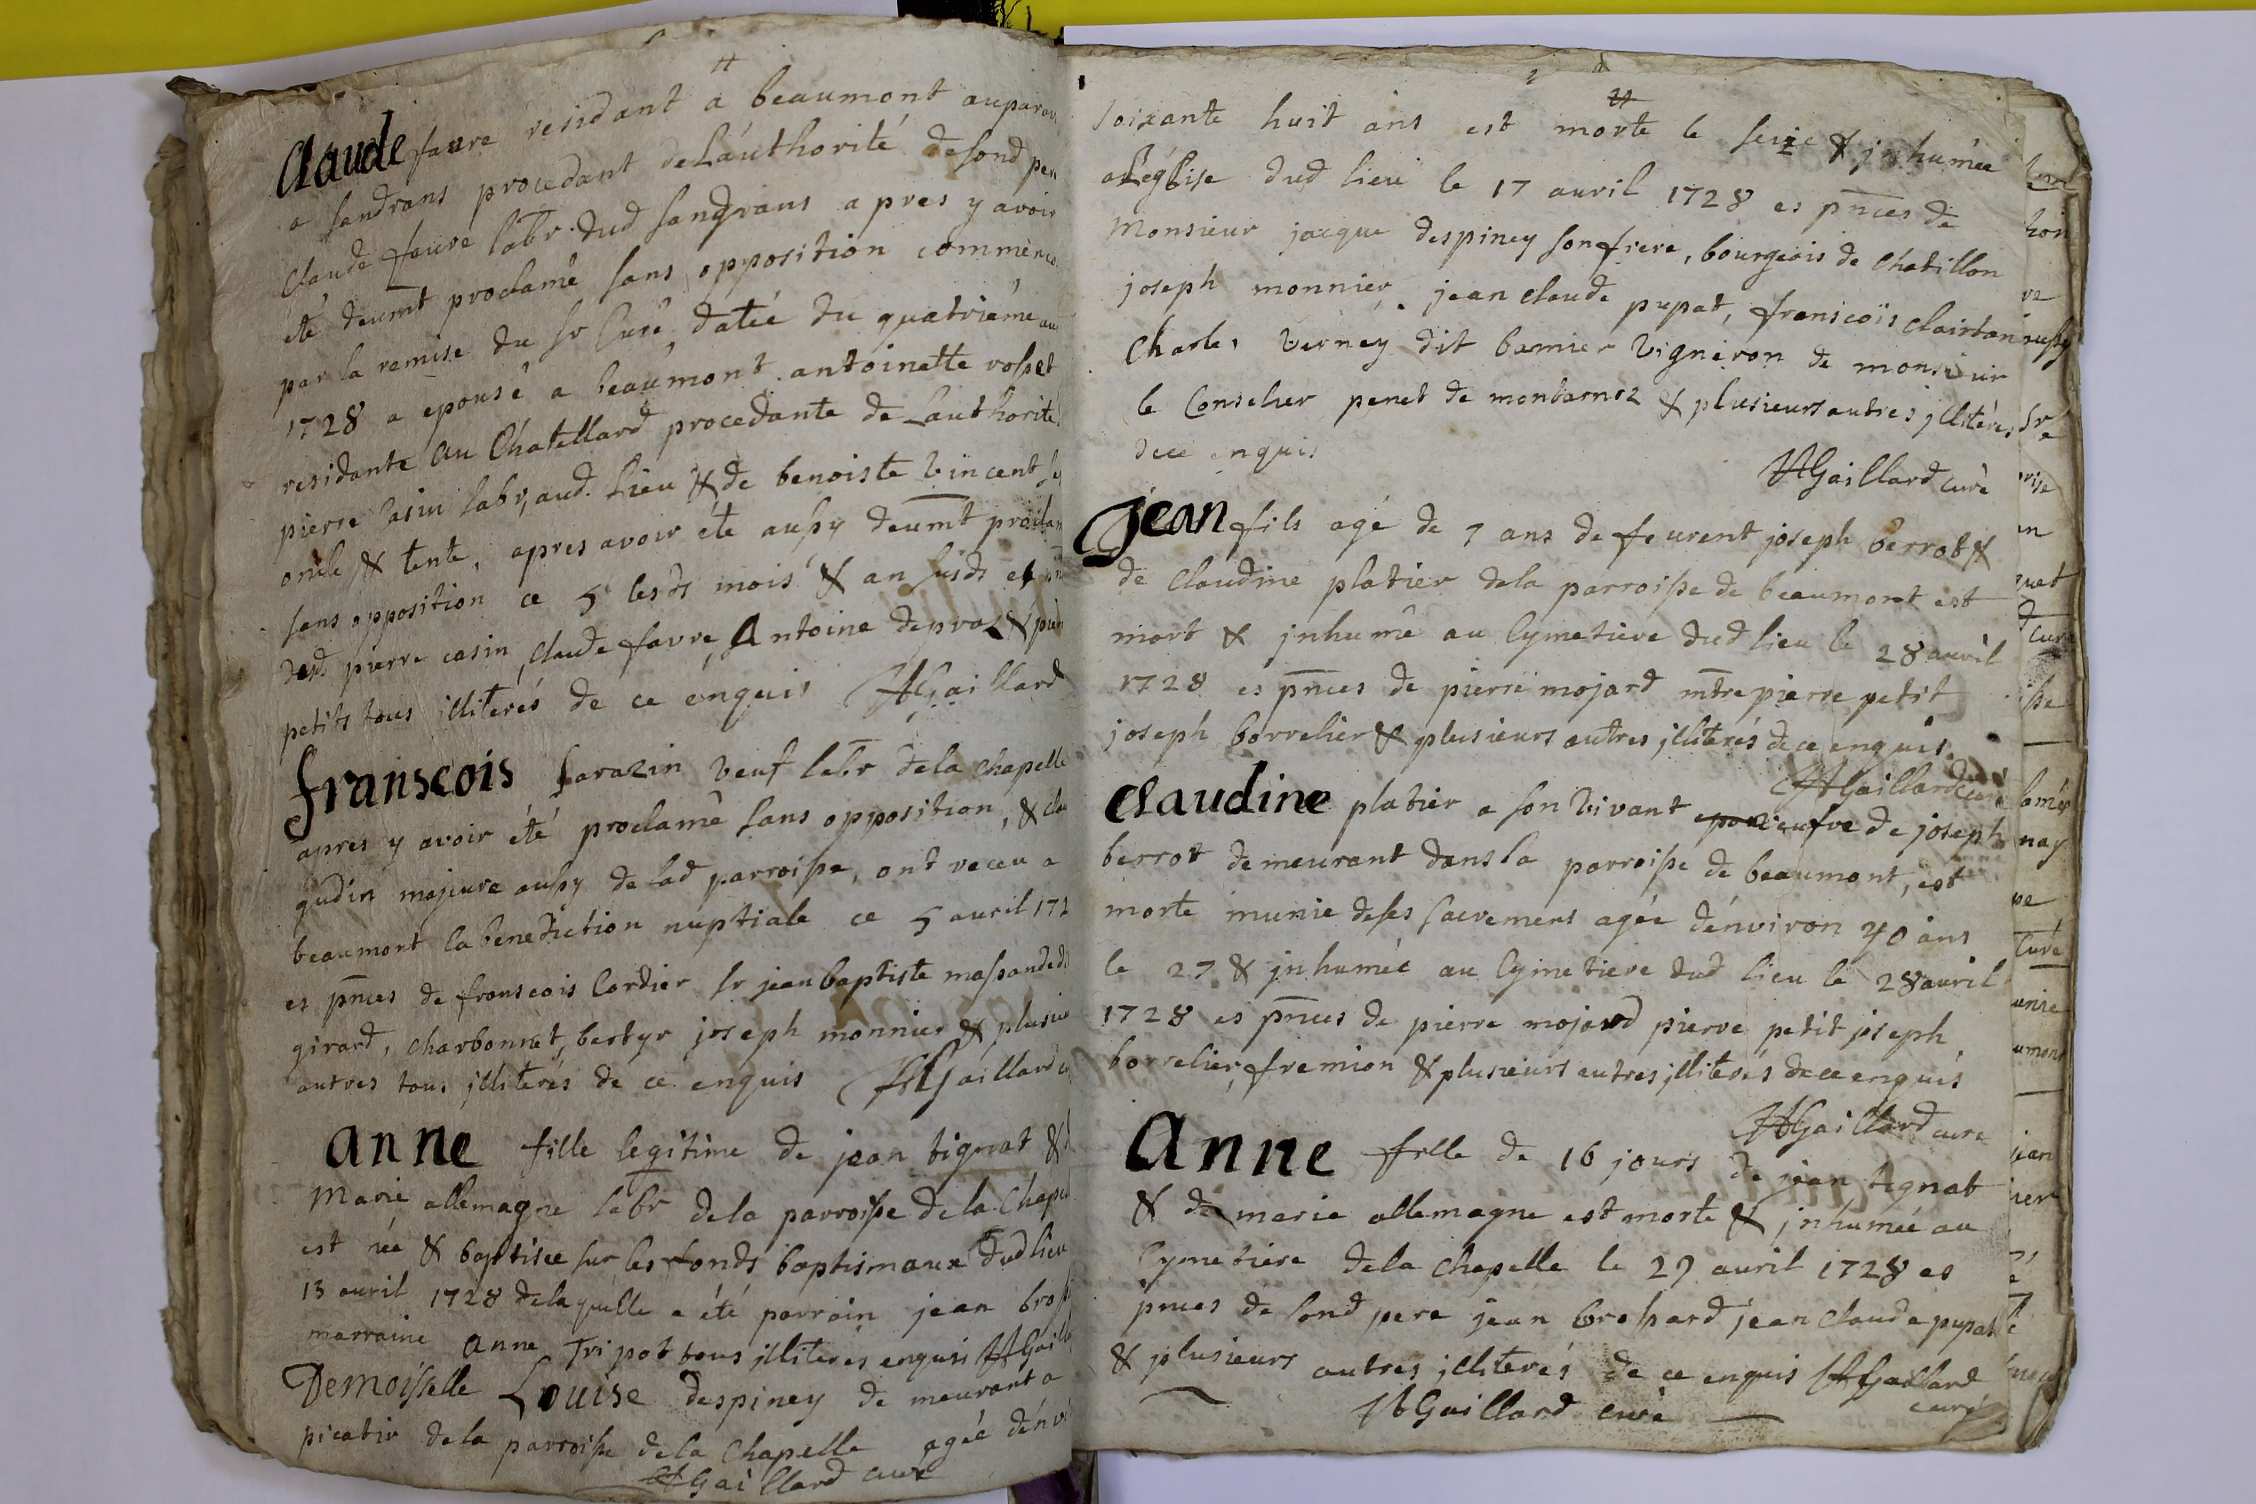 Claude favre residant a beaumont auparav
a sandrans procedant de l'authorité de sond per
claude favre labr dud sandrans apres y avoir
été deumt proclamé sans opposition comme
par la remise du sr Curé datée du quatriéme
1728 a epousé a beaumont antoinette rosset
residante au Chatellard procedante de Lauthorité
pierre casin labr, aud. lieu & de benoiste vincent
oncle & tente, apres avoir été aussy deumt proclam
sans opposition ce 5 lesds mois & an susds es
desd pierre casin, claude favre, Antoine depraz & pier
petits tous illiterés de ce enquis HGaillard
franscois sarazin veuf labr dela chapelle
apres y avoir été proclamé sans opposition, & clau
gudin majeure aussy de lad parroisse, ont receu a
beaumont la benediction nuptiale ce 5 avril 172
es pnces de franscois Cordier sr jean baptiste
girard, charbonnet, bertyr joseph monnier & plusieu
autres tous illiterés de ce enquis HGaillard
anne fille legitime de jean tignat &
Marie allemagne labr dela parroisse dela Chapel
est née & baptisee sur les fonds baptismaux dud lieu
13 avril 1728 delaquelle a été parrain jean
marraine Anne Tripot tous illiterés enquis HGaill
Demoisselle Louise despiney demeurant a
picatir dela parroisse dela Chapelle agée dénvi
HGaillard curé
soixante huit ans est morte le seize & jnhumée
a L'église dud lieu le 17 avril 1728 es pnces de
Monsieur jacque despiney son frere, bourgeois de Chatillon
joseph monnier, jean claude pupat, franscois
Charles verney dit bernier vigneron de monsieur
le Conselier penet de & plusieurs autres jlliterés
dece enquis
HGaillard curé
jean fils agé de 7 ans de joseph berrot &
de claudine platier dela parroisse de beaumont est
mort & jnhumé au Cymetiere dud lieu le 28 avril
1728 es pnces de pierre mojard mtre pierre petit
joseph borrelier & plusieurs autres jlliterés dece enquis
HGaillard curé
Claudine platier a son vivant veufve de joseph
berrot demeurant dans la parroisse de beaumont, est
morte munie deses sacremens agée dénviron 40 ans
le 27 & jnhumée au Cymetiere dud lieu le 28 avril
1728 es pnces de pierre mojard pierre petit joseph
borrelier, fremion & plusieurs autres jlliterés dece enquis
HGaillard cure
Anne fille de 16 jours de jean tignat
& de marie allemagne est morte & jnhumée au
Cymetiere dela chapelle le 29 avril 1728 es
pnces de sond pere jean brossard jean claude pupat
& plusieurs autres jlliterés de ce enquis HGaillard
curé
HGaillard curé